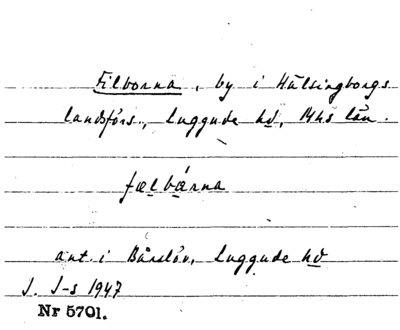 Filborna, by i Hälsingborgs
landsförs., Luggude hd, Mhs län.
fælbárna
ant. i Bårslöv, Luggude hd
J. J-s 1947
Nr 5701.